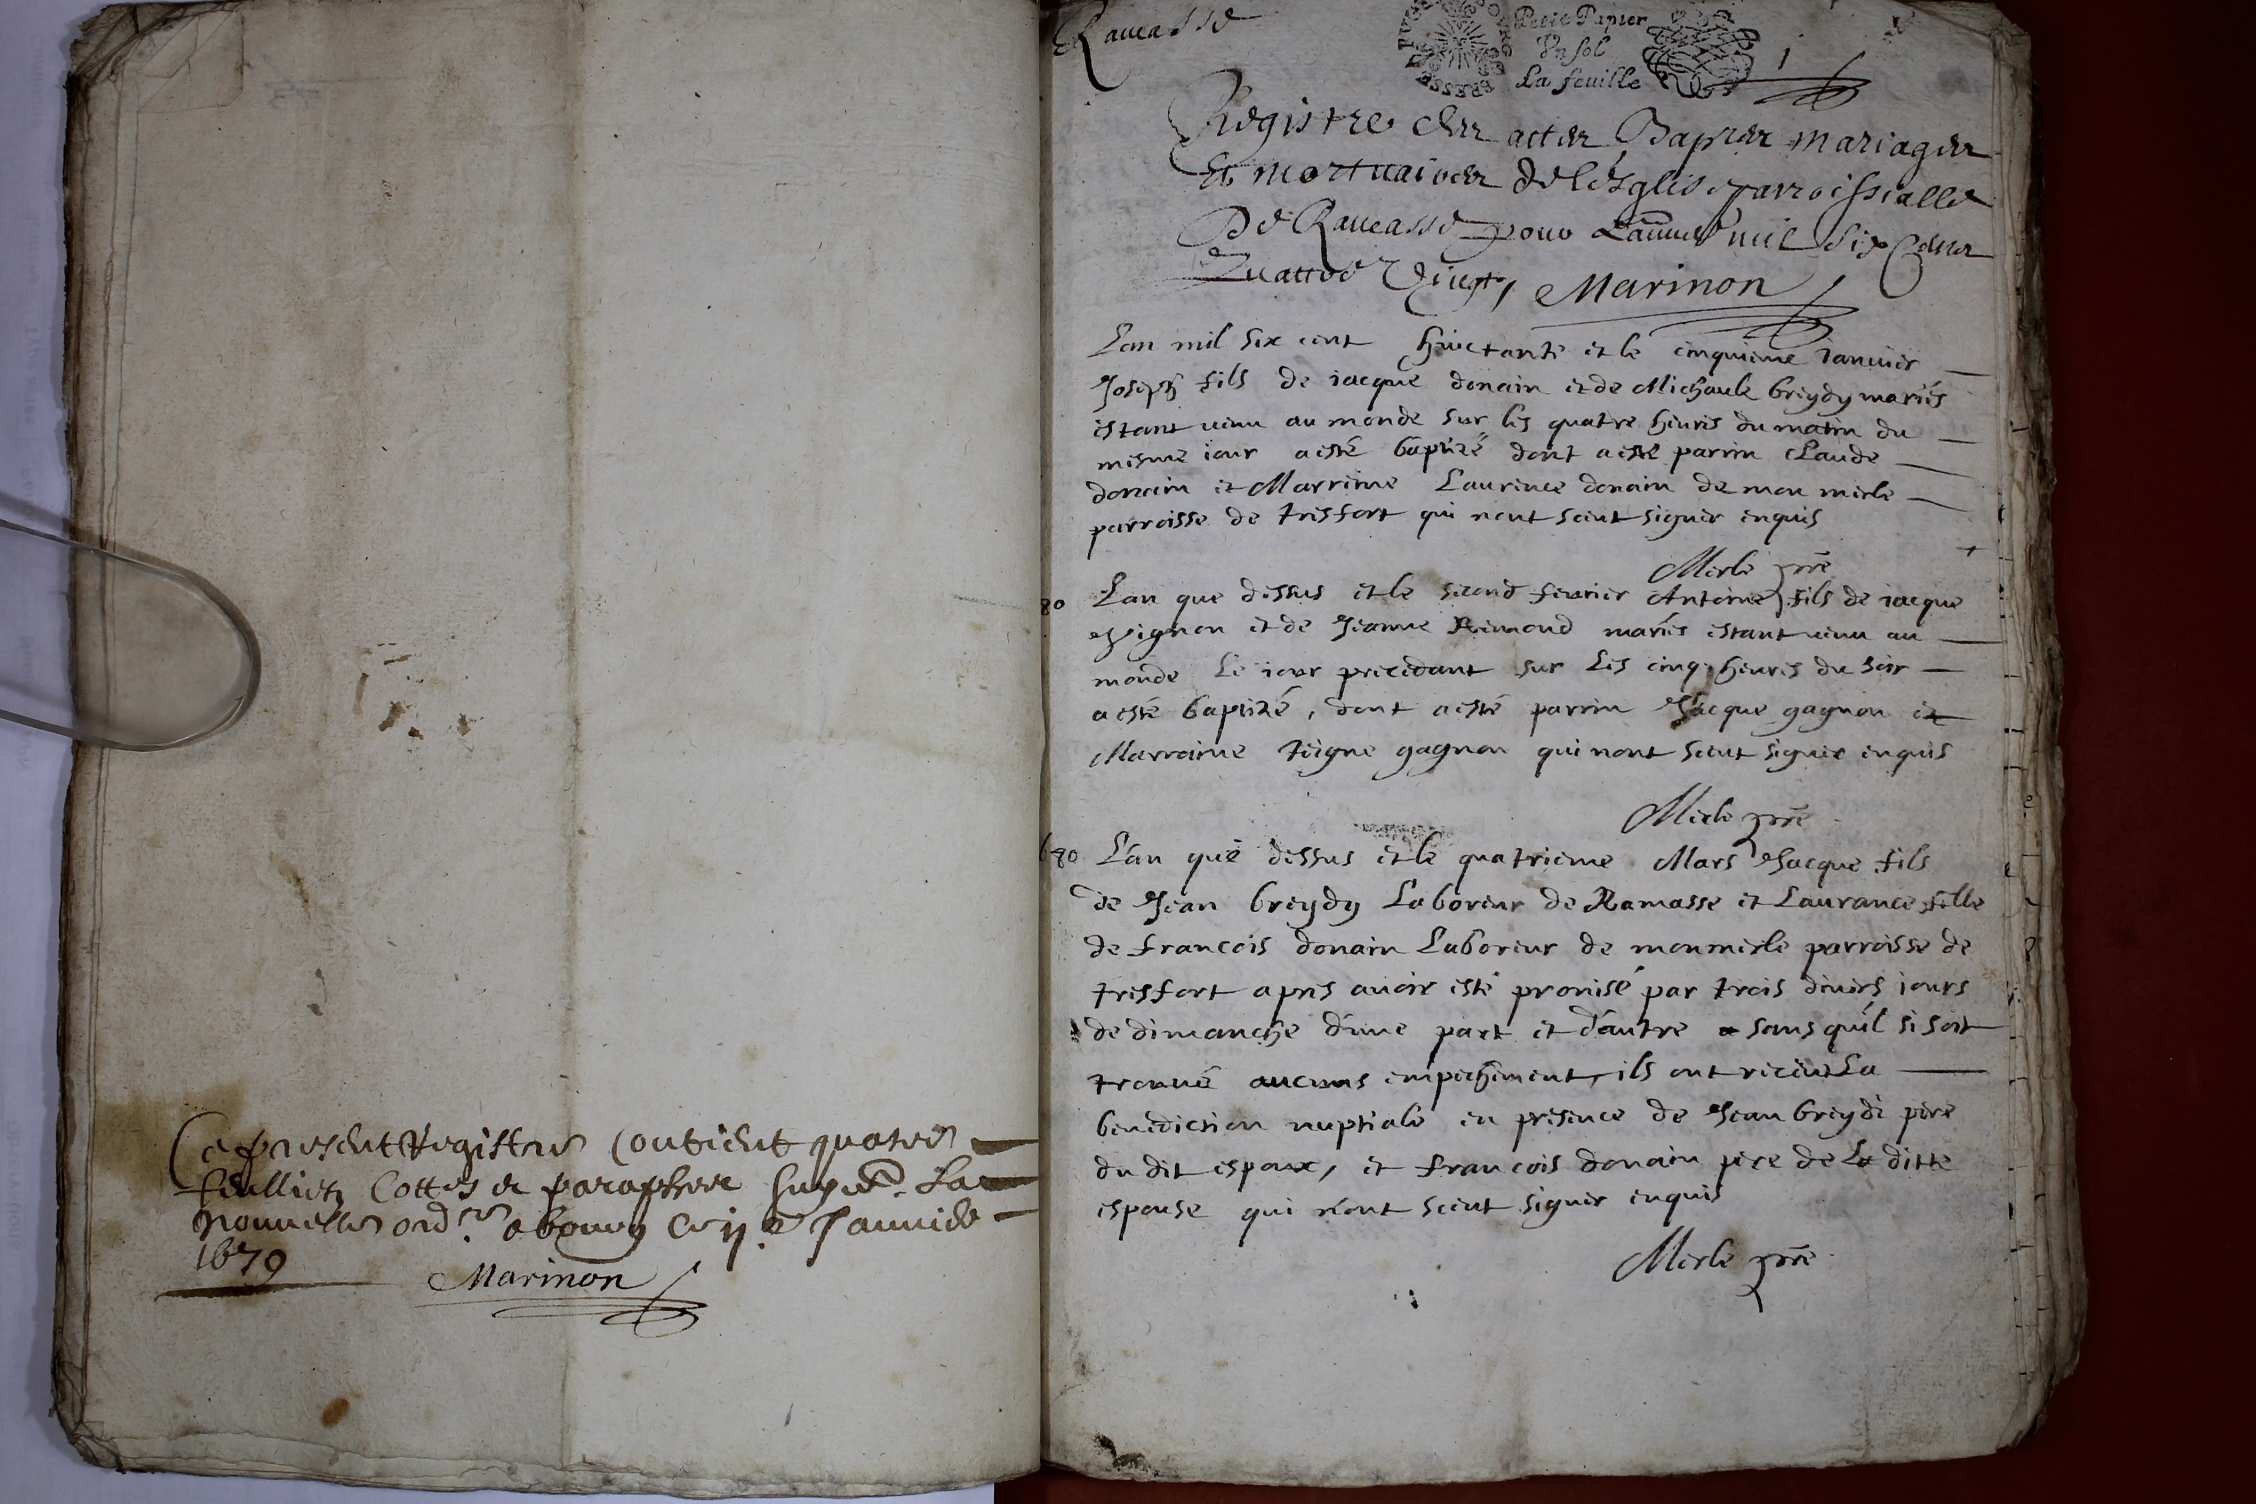 Ce present Registre Contient quatre
feullietz Cottes et paraphez suyvt. La
nouvelle ordce. a bourg Ce ij. e Janvier
1679
Marinon
Ramasse
BRESSE BOURG
Petit Papier
Vn sol
La feuille
1
Registre des actes Baptes mariages
Et mortuaires de lésglise parroissialle
De Ramasse pour Lannee mil six Cens
Quattre Vingt, Marinon
Lan mil six cent huictante et le cinquieme ianuier
Joseph fils de iacque donain et de Michaule breydy mariés
estant uenu au monde sur les quatre heures du matin du
mesme iour a esté baptizé dont a esté parrin Claude
donain et Marrine Laurence donain de mon merle
parroisse de tresfort qui nont sceut signer enquis
Merle pre
80 Lan que dessus et le second feurier Antoine fils de iacque
et de Jeanne Remond mariés estant uenu au
monde le iour precedant sur les cinq heures du soir
a esté baptizé, dont a esté parrin Jacque gagnon et
Marraine gagnon qui nont sceut signer enquis
Merle pre
680 L'an que dessus et le quatrieme Mars Jacque fils
de Jean breydy Laboreur de Ramasse et Laurance fille
de francois donain Laboreur de monmerle parroisse de
tresfort apres auoir esté pronisé par trois diuers iours
de dimanche d'une part et d'autre sans qu'il si soit
trouué aucuns empechement, ils ont receut La
benediction nuptiale en presence de Jean breydi pere
du dit espoux, et francois donain pere de La ditte
espouse qui n'ont sceut signer enquis
Merle pre